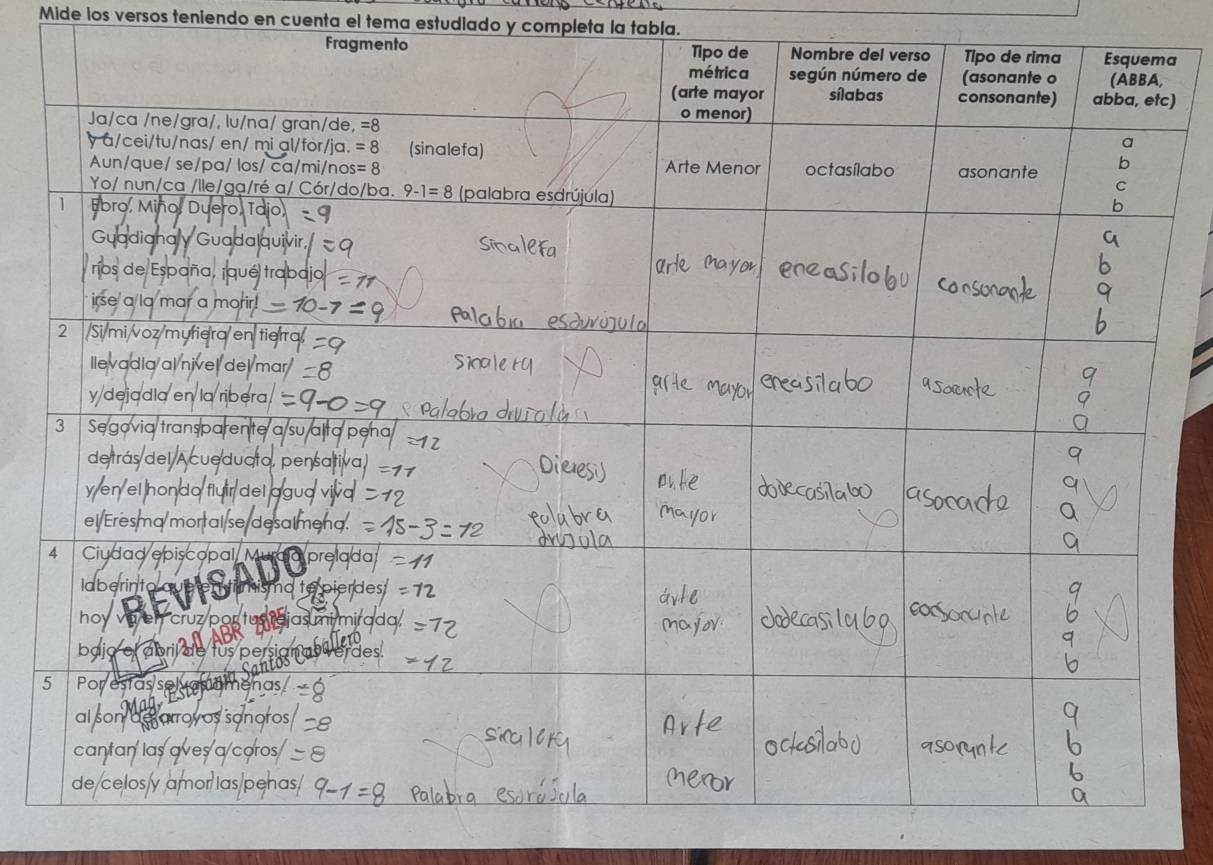 Mide los versos teniendo en cuenta el tema estudiado y completa la tabla.
Fragmento
Tipo de métrica (arte mayor o menor)
Nombre del verso según número de sílabas
Tipo de rima (asonante o consonante)
Esquema (ABBA, abba, etc)
Ja/ca /ne/gra/, lu/na/ gran/de, =8
y a/cei/tu/nas/ en/ mi al/for/ja. = 8 (sinalefa)
Aun/que/ se/pa/ los/ ca/mi/nos= 8
Yo/ nun/ca /lle/ga/ré a/ Cór/do/ba. 9-1= 8 (palabra esdrújula)
Arte Menor
octasílabo
asonante
a
b
c
b
1
Ebro, Miño, Duero, Tajo, =9
Guadiana y Guadalquivir, =9 sinalefa
ríos de España, ¡qué trabajo =11
irse a la mar a morir! = 10-1=9 Palabra esdurujula
arte mayor
eneasilobo
consonante
a
b
a
b
2
Si mi voz muriera en tierra, =9
llevadla al nivel del mar =8 sinalera
y dejadla en la ribera =9-0=9 palabra
arte mayor
eneasilabo
asocante
a
a
a
3
Segovia transparente a su alta pena =12
detrás del Acueducto, pensativa =11 Dieresis
y en el hondo fluir del agua viva =12
el Eresma mortal se desalmena. =15-3=12 palabra
arte mayor
dodecasilabo
asocante
a
a
a
a
4
Ciudad episcopal Murcia prelada =11
laberinto que en ti misma te pierdes =12
hoy ven cruz por tus rejas mi mirada, =12
bajo el abril de tus persianas verdes. =12
arte mayor
dodecasilabo
consonante
a
b
a
b
REVISADO
30 ABR 2025
Mag. Estefanía Santos Caballero
5
Por estas selvas amenas =8
al son de arroyos sonoros =8
cantan las aves a coros =8 sinalera
de celos y amor las penas 9-1=8 Palabra esdrújula
Arte menor
octosilabo
asonante
a
b
b
a